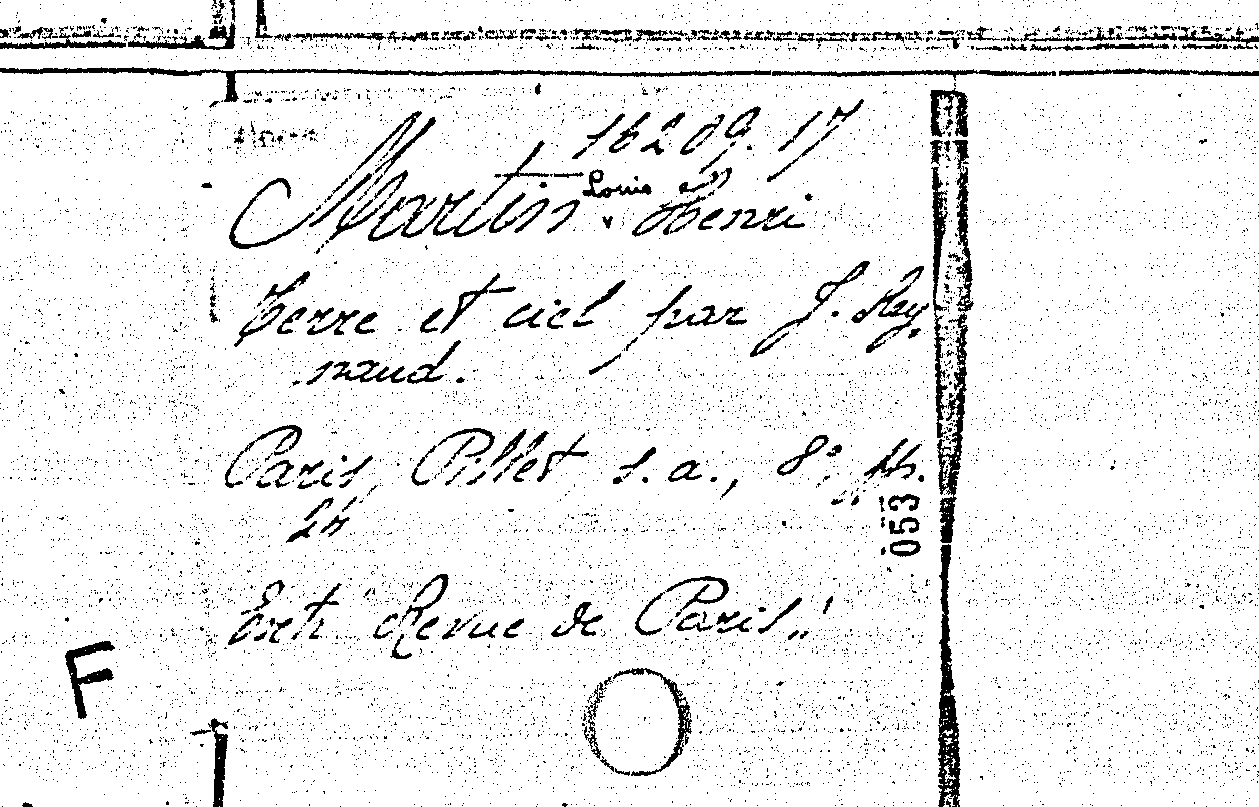 16209.17
Martin, Louis Henri
Terre et ciel par J. Rey-
naud.
Paris, Pillet s.a., 8°,
24
053
Extr "Revue de Paris"
F